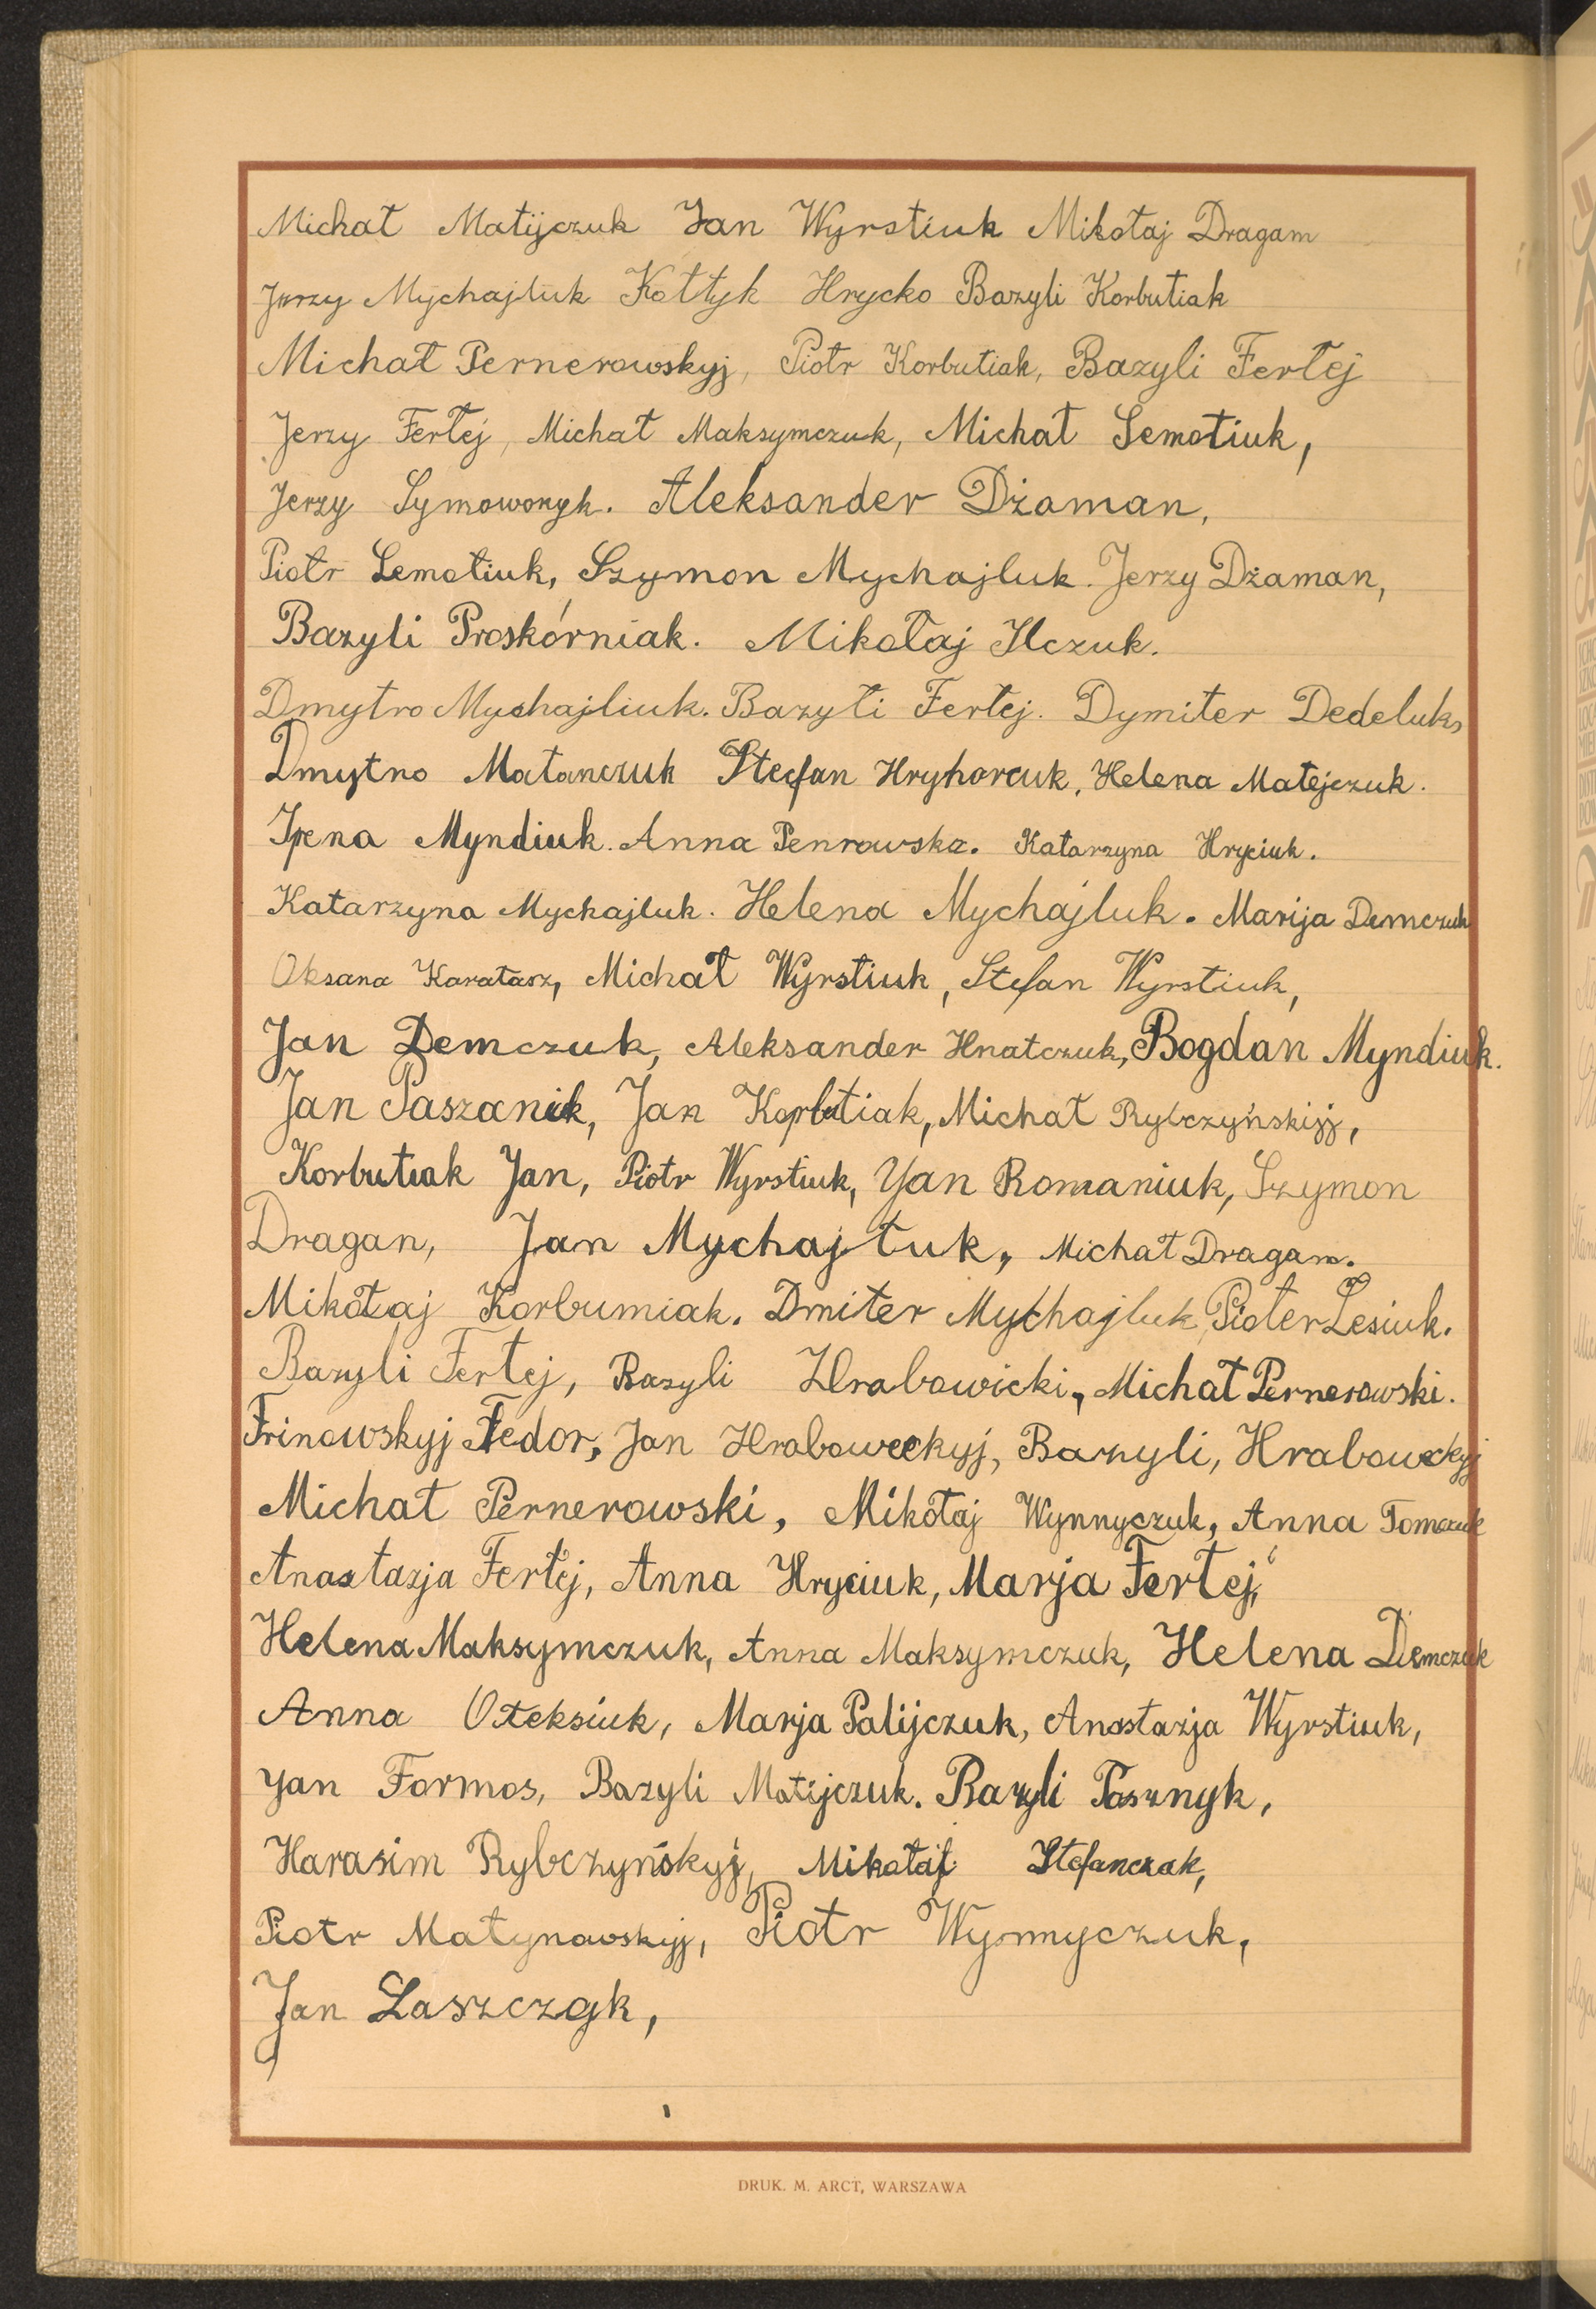 Michał Matijczuk Jan Wyrstiuk Mikołaj Dragam
Jerzy Mychajluk Kołtyk Hrycko Bazyli Korbutiak
Michał Pernerowskyj, Piotr Korbutiak, Bazyli Fertej
Jerzy Fertej, Michał Maksymczuk, Michał Semotiuk,
Jerzy Symowonyk. Aleksander Dżaman,
Piotr Semotiuk, Szymon Mychajluk. Jerzy Dżaman,
Bazyli Proskórniak. Mikołaj Ilczuk.
Dmytro Mychajliuk. Bazyli Fertej. Dymiter Dedeluk,
Dmytro Matanczuk Stefan Hryhorcuk, Helena Matejczuk.
Irena Myndiuk. Anna Penrowska. Katarzyna Hryciuk.
Katarzyna Mychajluk. Helena Mychajluk. Marija Demczuk
Oksana Karatasz, Michał Wyrstiuk, Stefan Wyrstiuk,
Jan Demczuk, Aleksander Hnatczuk, Bogdan Myndiuk.
Jan Paszanik, Jan Korbutiak, Michał Rybczyńskijj,
Korbutiak Jan, Piotr Wyrstiuk, Yan Romaniuk, Szymon
Dragan, Jan Mychajłuk, Michał Dragam.
Mikołaj Korbumiak. Dmiter Mychajluk, Pioter Lesiuk.
Bazyli Fertej, Bazyli Hrabowicki, Michał Pernerowski.
Frinowskyj Fedor, Jan Hraboweckyj, Bazyli, Hraboweckyj
Michał Pernerowski, Mikołaj Wynnyczuk, Anna Tomczuk
Anastazja Fertej, Anna Hryciuk, Marja Fertej,
Helena Maksymczuk, Anna Maksymczuk, Helena Demczuk
Anna Ołeksiuk, Marja Palijczuk, Anastazja Wyrstiuk,
Yan Formos, Bazyli Matijczuk. Bazyli Pasznyk,
Harasim Rybczyńskyj, Mikołaj Stefanczak,
Piotr Matynowskyj, Piotr Wynnyczuk,
Jan Laszczyk,
DRUK. M. ARCT, WARSZAWA